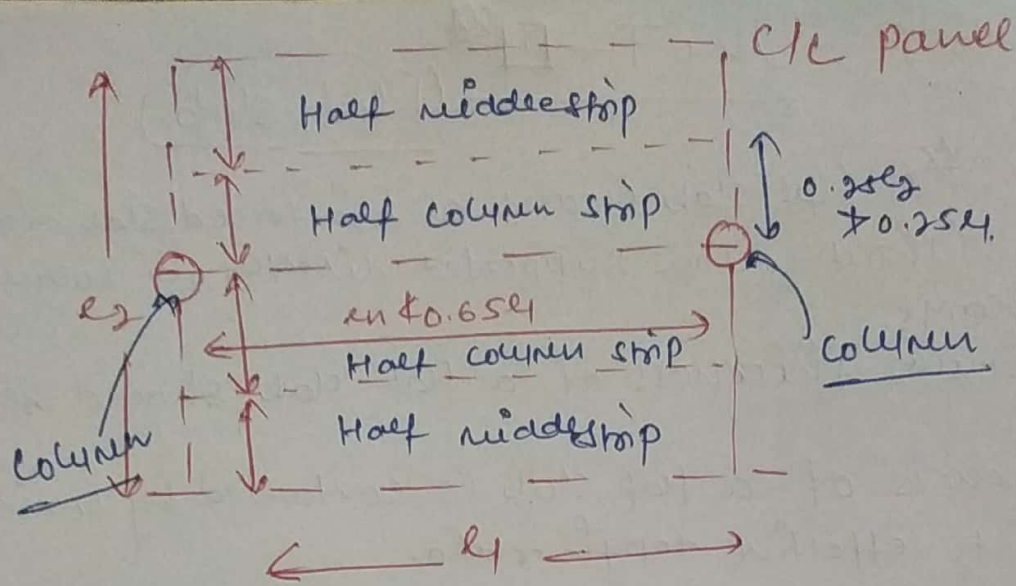 C/C panel
Half middle strip
0.25l2
≯0.25l1.
Half column strip
l2
ln ≮0.65l1
Half column strip
column
Half middle strip
column
l1